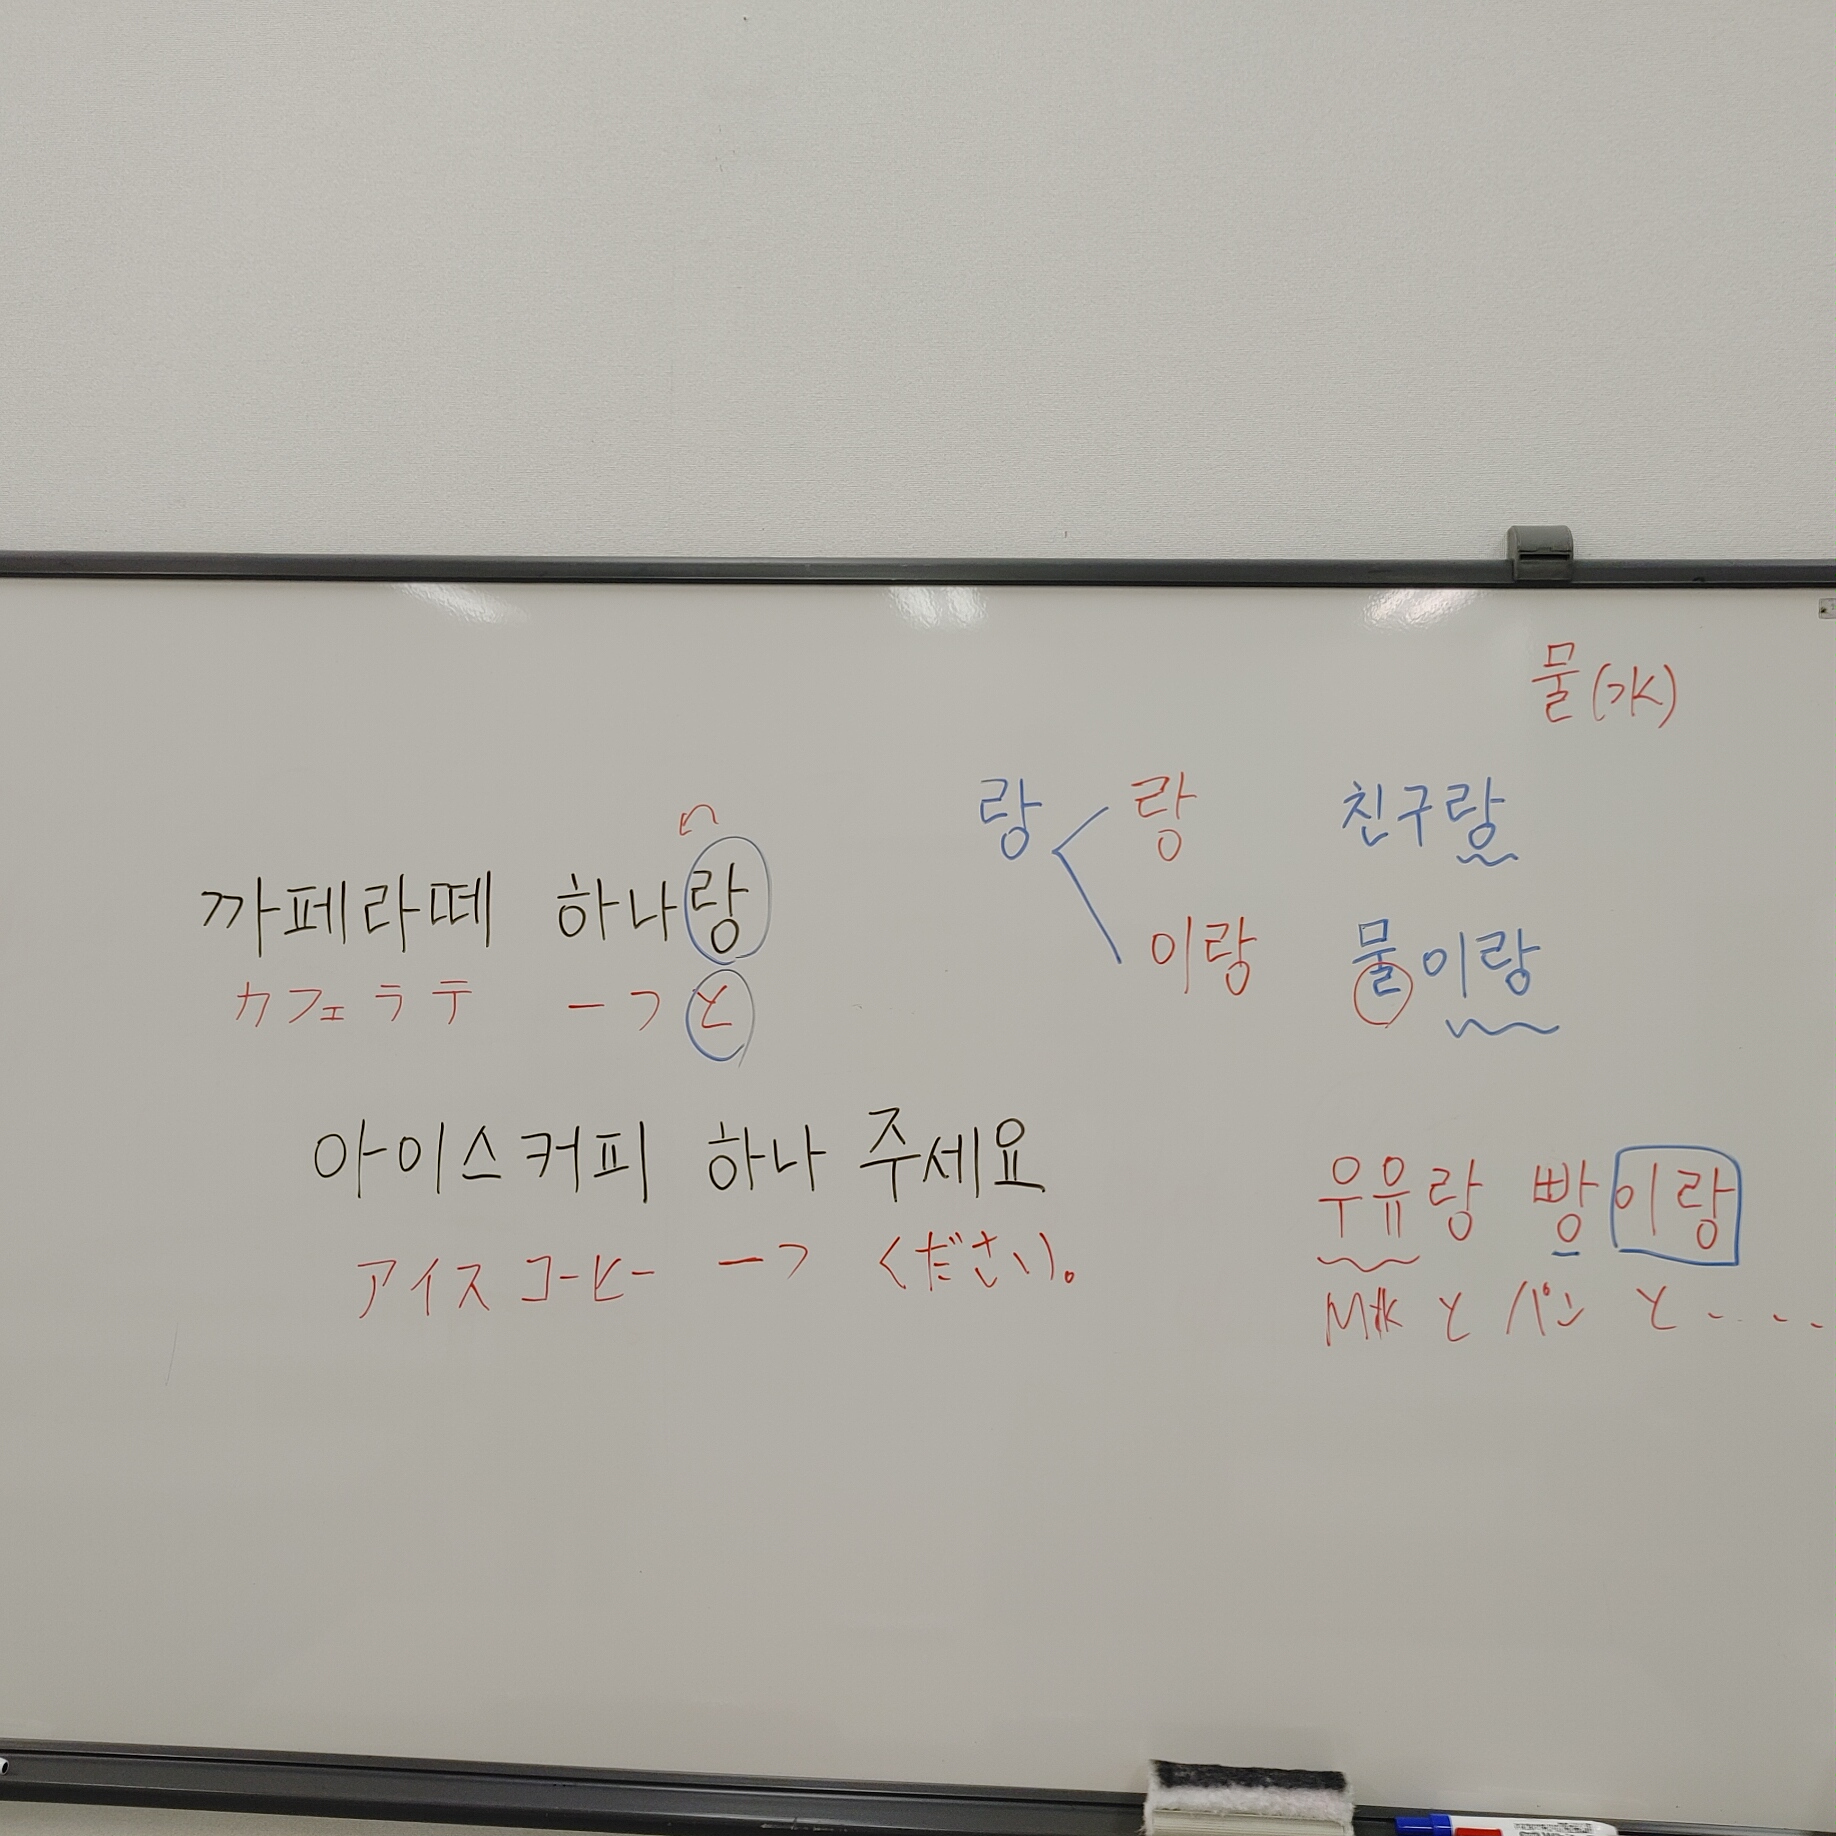 까페라떼 하나랑
カフェラテ 一つと
아이스커피 하나 주세요
アイスコーヒー 一つ ください。
물(水)
랑 랑 친구랑
이랑 물이랑
우유랑 빵이랑
Milk と パン と . . . .